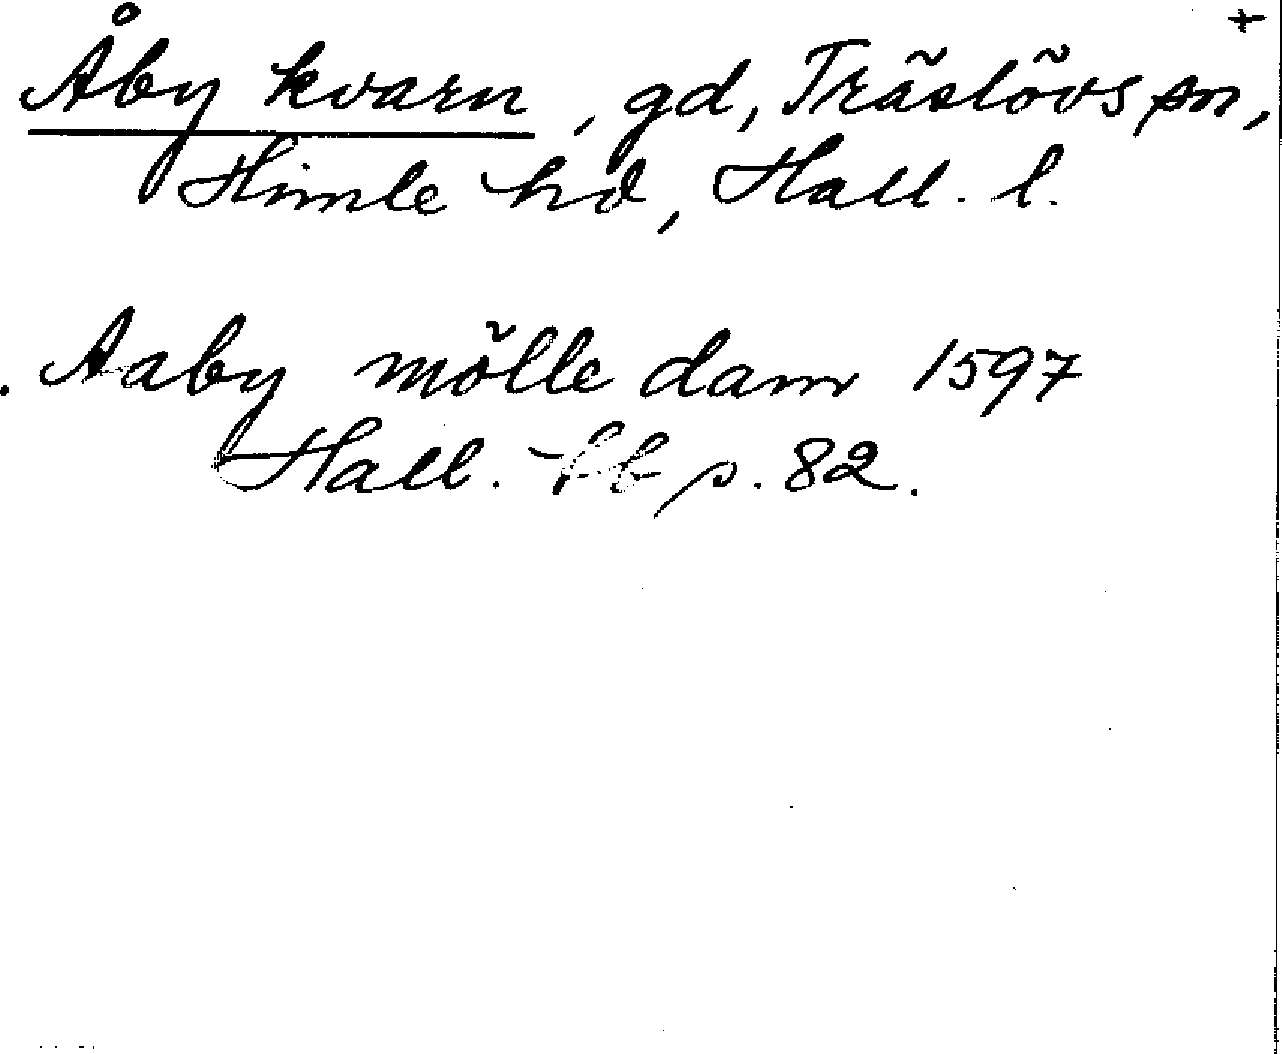 +
Åby kvarn, gd, Träslövs sn,
Himle hd, Hall. l.
Aaby mölle dam 1597
Hall. p. 82.